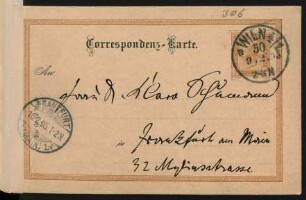 306
Correspondenz-Karte.
WIEN
An
Frau Dr Clara Schumann
in Frankfurt am Main
32 Myliusstrasse
FRANKFURT